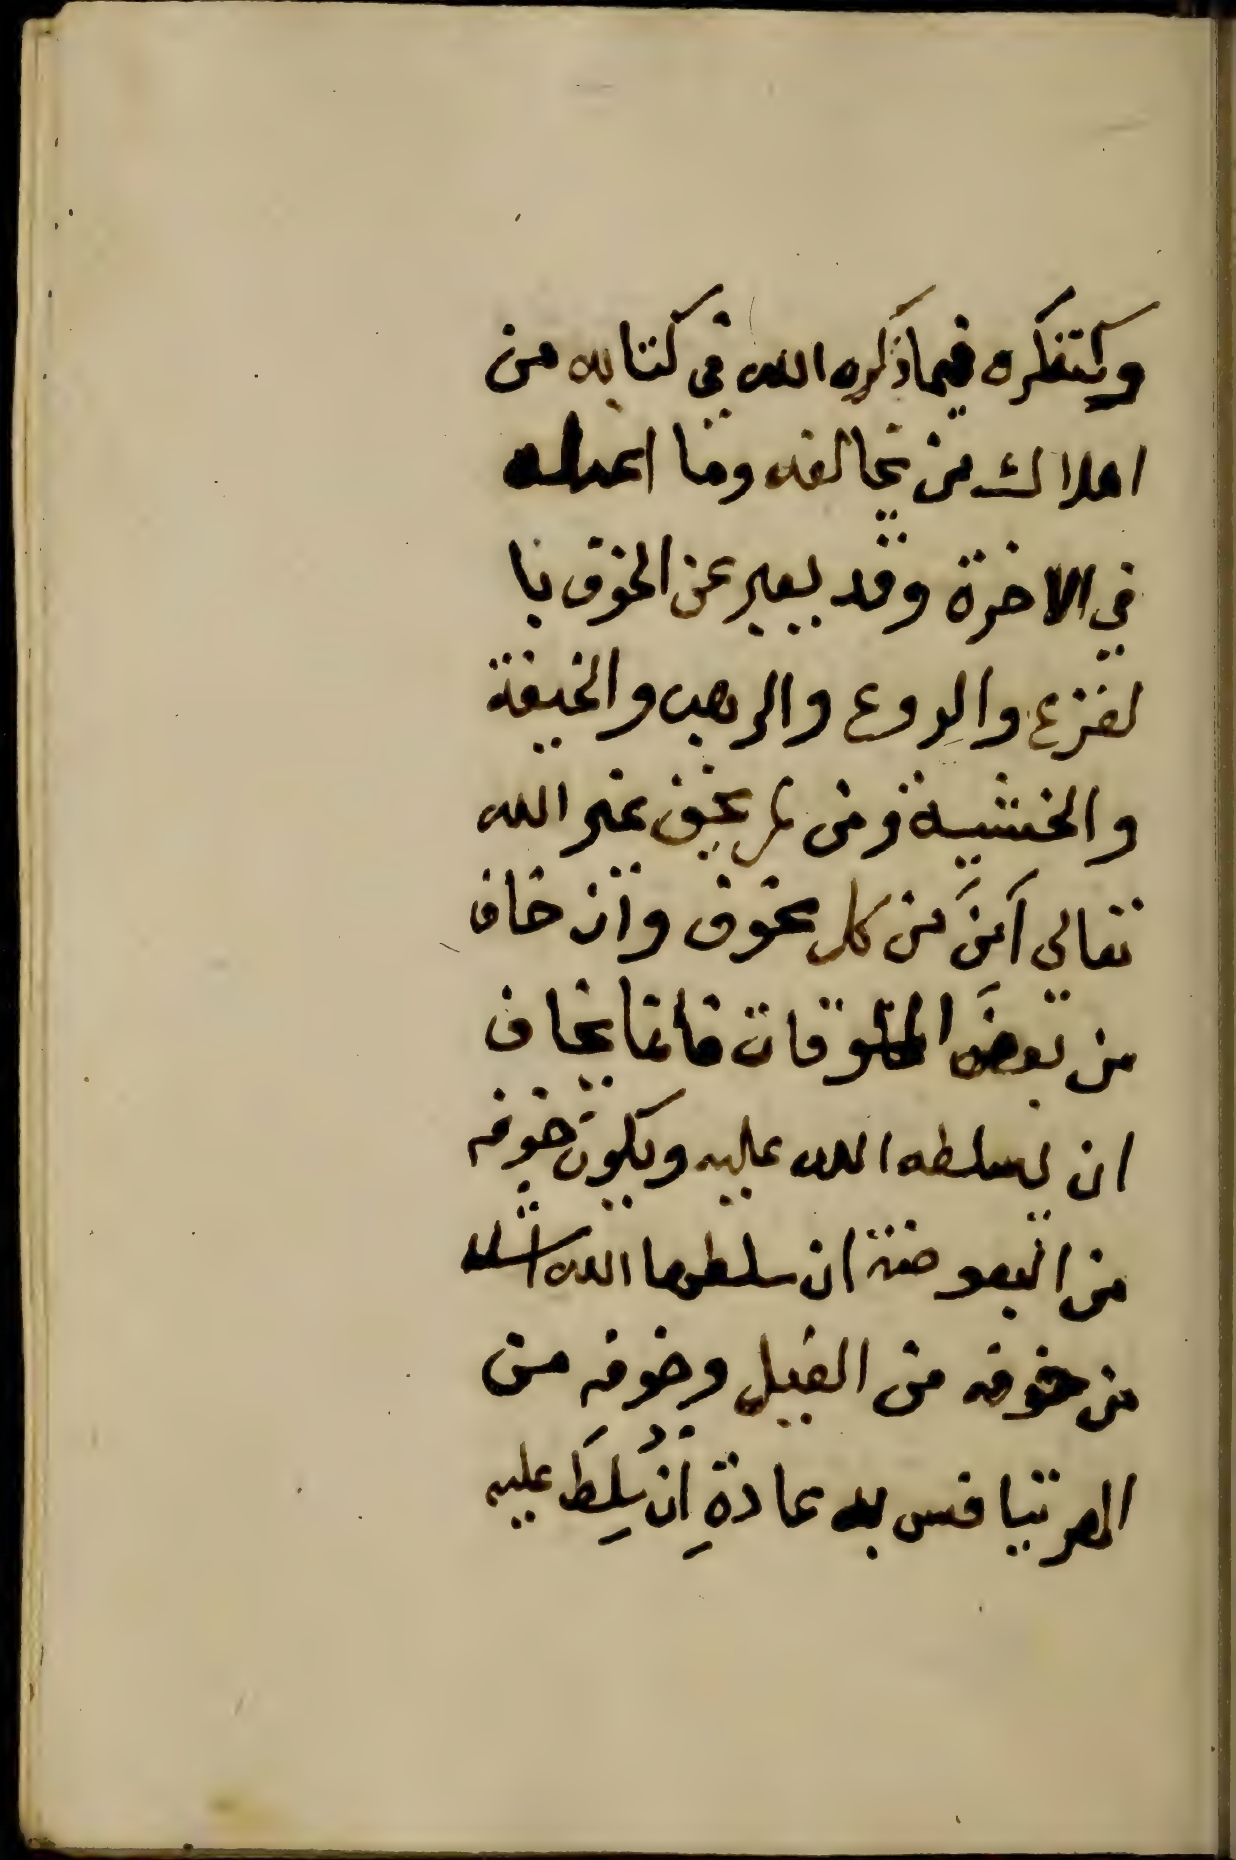 وكتفكره فيما ذكره الله في كتابه من
اهلاك من يخالفه وما اعد له
في الاخرة وقد يعبر عن الخوف با
لفزع والروع والرهب والخيفة
والخشية ومن لم يخف غير الله
تعالى أمنَ من كل مخوف وان خاف
من بعضَ المخلوقات فانما يخاف
ان يسلطه الله عليه ويكون خوفه
من البعوضة ان سلطها الله اشد
من خوفه من الفيل وخوفه من
الهر تنافس به عادةِ ان سُلِطَ عليه